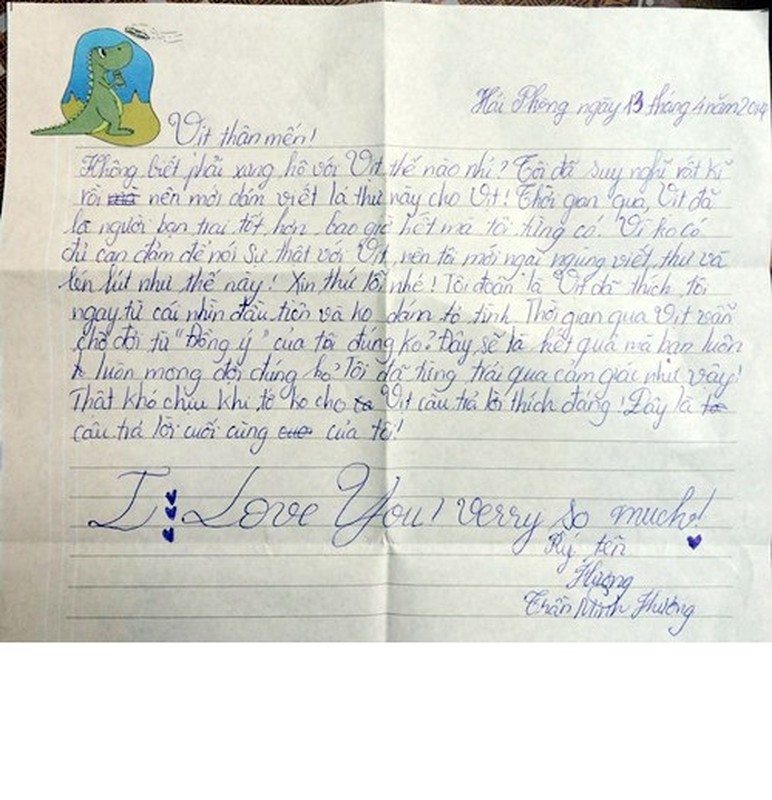 Hải Phòng ngày 13 tháng 4 năm 2014
Vịt thân mến!
Không biết phải xưng hô với Vịt thế nào nhỉ? Tôi đã suy nghĩ rất kĩ
rồi mà nên mới dám viết lá thư này cho Vịt! Thời gian qua, Vịt đã
là người bạn trai tốt hơn bao giờ hết mà tôi từng có! Vì ko có
đủ can đảm để nói sự thật với Vịt, nên tôi mới ngại ngùng viết thư và
lén lút như thế này! Xin thứ lỗi nhé! Tôi đoán là Vịt đã thích tôi
ngay từ cái nhìn đầu tiên và ko dám tỏ tình. Thời gian qua Vịt vẫn
chờ đợi từ "Đồng ý" của tôi đúng ko? Đây sẽ là kết quả mà bạn luôn
luôn mong đợi đúng ko? Tôi đã từng trải qua cảm giác như vậy!
Thật khó chịu khi tớ ko cho Vịt câu trả lời thích đáng! Đây là
câu trả lời cuối cùng của tôi!
I Love You! Verry so much!
Ký tên
Hường
Trần Minh Hường